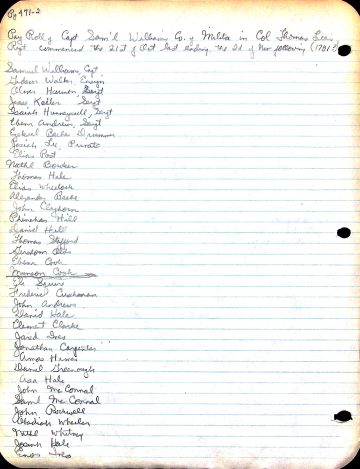 Pg 491-2
Pay Roll of Capt Sam'l Williams Co. of Militia in Col Thomas Lee's
Regt commenced the 21st of Oct last ending the 21 of Nov following (1781)
Samuel Williams, Capt
Walker, Ensign
Oliver Harmon, Sergt
Isaac Keller Sergt
Isaiah Hunnewell, Sergt
Eben Andrews, Sergt
Ezekiel Beebe Drummer
Josiah Lee Private
Elias Post
Nathl Bowker
Thomas Hale
Elias Wheelock
Alexander Beebe
John Claghorn
Phinehas Hill
Daniel Hill
Thomas
Gershom
Eben Cook
Munson Cook
Eli Squire
Frederic Cushman
John Andrews
David Hale
Clement Clarke
Jared Ives
Jonathan Carpenter
Amos Haines
Daniel Greenough
Asa Hale
John McConnal
Saml McConnal
John Rockwell
Obadiah Wheeler
Nathl Whitney
Josiah Hale
Enos Ives